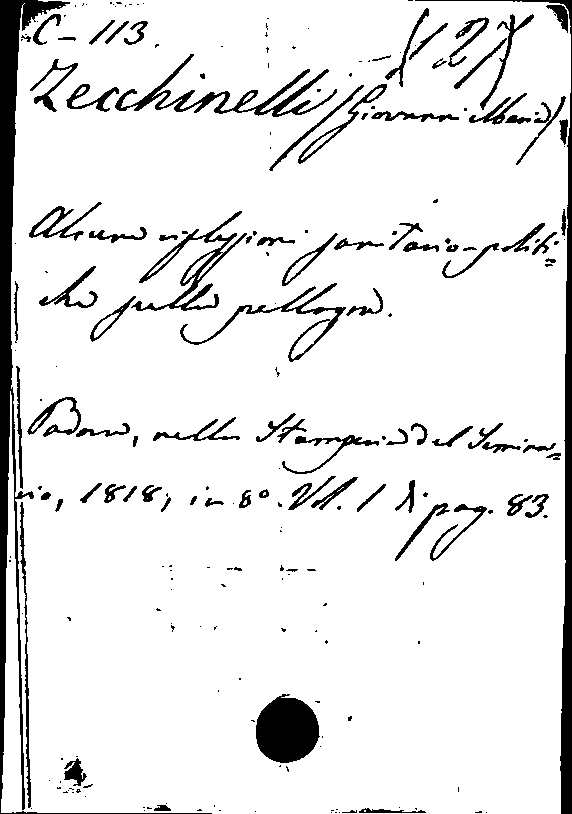 C-113. (12)
Zecchinelli (Giovanni Maria)
Alcune riflessioni sanitario-politi=
che sulla pellagra.
Padova, nella Stamperia del Semina=
rio, 1818, in 8º. Vol. 1 di pag. 83.